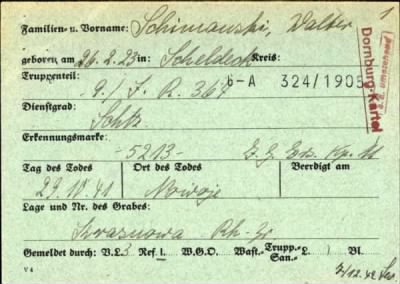 1
Familien- u. Vorname: Schimanski, Walter
geboren am 26.2.23 in: Kreis:
Truppenteil: 6-A 324/1905
9./ J. R. 364
Dienstgrad:
Schtz.
Erkennungsmarke:
-5213-
Tag des Todes Ort des Todes Beerdigt am
29.10.41 Nowoje
Lage und Nr. des Grabes:
Gemeldet durch: V.L. 3 Ref. 1. W.G.O. Wast.- Trupp.- San.- L. Bl.
V 4
Dornburg-Kartei
s. d. umstehend